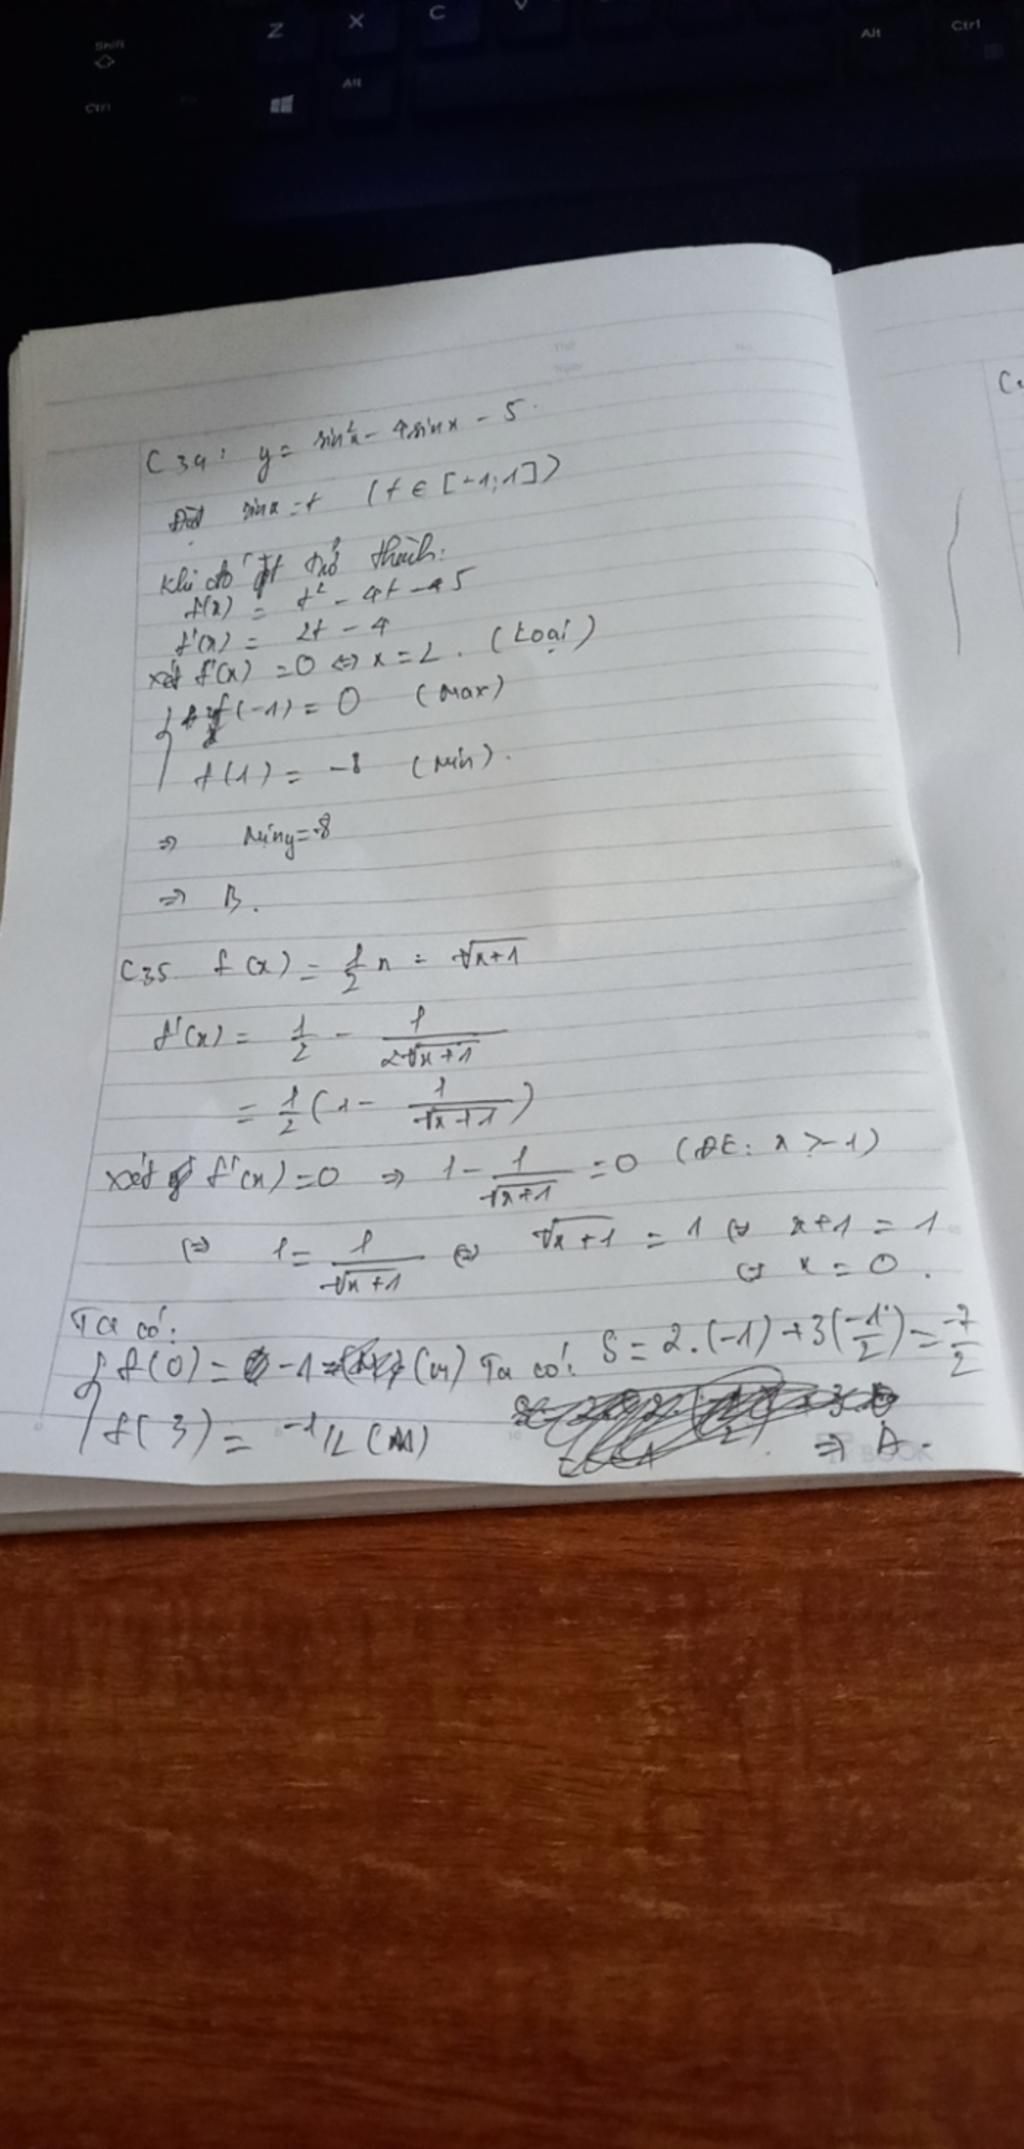 Shift
Z X C V
Alt
Ctrl
Ctrl
Alt
C34: y = sin²x - 4sinx - 5.
Đặt sinx = t (t ∈ [-1;1])
Khi đó pt trở thành:
f(x) = t² - 4t - 5
f'(x) = 2t - 4
xét f'(x) = 0 ⇔ x = 2. (Loại)
f(-1) = 0 (Max)
f(1) = -8 (Min).
⇒ Miny = -8
⇒ B.
C35. f(x) = 1/2 x - √x+1
f'(x) = 1/2 - 1/2√x+1
= 1/2 (1 - 1/√x+1)
xét f'(x) = 0 ⇒ 1 - 1/√x+1 = 0 (ĐK: x > -1)
⇔ 1 = 1/√x+1 ⇔ √x+1 = 1 ⇔ x+1 = 1
⇔ x = 0.
Ta có:
f(0) = -1 (m) Ta có: S = 2.(-1) + 3(-1/2) = -7/2
f(3) = -1/2 (M)
⇒ A.
BOOK